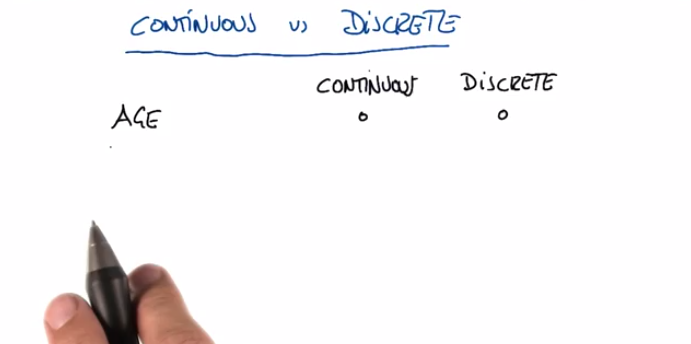 CONTINUOUS vs DISCRETE
CONTINUOUS DISCRETE
AGE